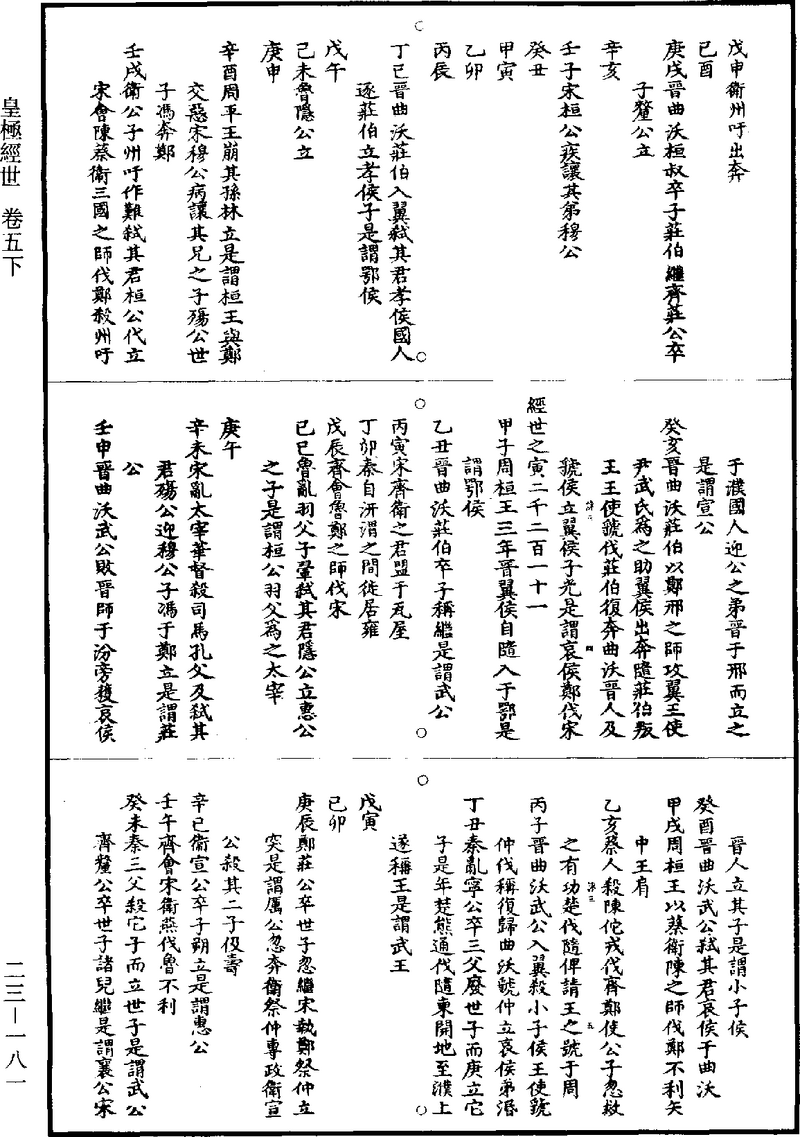 皇極經世　卷五下
戊申衛州吁出奔
已酉
庚戌晉曲沃桓叔卒子莊伯繼齊莊公卒
子釐公立
辛亥
壬子宋桓公疾讓其弟穆公
癸丑
甲寅
乙卯
丙辰
丁已晉曲沃莊伯入翼弒其君孝侯國人
逐莊伯立孝侯子是謂鄂侯
戊午
己未魯隱公立
庚申
辛酉周平王崩其孫林立是謂桓王與鄭
交惡宋穆公病讓其兄之子殤公世
子馮奔鄭
壬戌衛公子州吁作難弒其君桓公代立
宋會陳蔡衛三國之師伐鄭殺州吁
于濮國人迎公之弟晉于邢而立之
是謂宣公
癸亥晉曲沃莊伯以鄭邢之師攻翼王使
尹武氏為之助翼侯出奔隨莊伯叛
王王使虢伐莊伯復奔曲沃晉人及
虢侯立翼侯子光是謂哀侯鄭伐宋
經世之寅二千二百一十一
甲子周桓王三年晉翼侯自隨入于鄂是
謂鄂侯
乙丑晉曲沃莊伯卒子稱繼是謂武公
丙寅宋齊衛之君盟于瓦屋
丁卯秦自汧渭之間徙居雍
戊辰齊會魯鄭之師伐宋
已巳魯亂羽父子翬弒其君隱公立惠公
之子是謂桓公羽父為之太宰
庚午
辛未宋亂太宰華督殺司馬孔父及弒其
君殤公迎穆公子馮于鄭立是謂莊
公
壬申晉曲沃武公敗晉師于汾旁獲哀侯
晉人立其子是謂小子侯
癸酉晉曲沃武公弒其君哀侯于曲沃
甲戌周桓王以蔡衛陳之師伐鄭不利矢
中王肩
乙亥蔡人殺陳佗戎伐齊鄭使公子忽救
之有功楚伐隨俾請王之號于周
丙子晉曲沃武公入翼殺小子侯王使虢
仲伐稱復歸曲沃虢仲立哀侯弟湣
丁丑秦亂寧公卒三父廢世子而庚立它
子是年楚熊通伐隨東開地至濮上
遂稱王是謂武王
戊寅
已卯
庚辰鄭莊公卒世子忽繼宋執鄭祭仲立
突是謂厲公忽奔衛祭仲專政衛宣
公殺其二子伋壽
辛已衛宣公卒子朔立是謂惠公
壬午齊會宋衛燕伐魯不利
癸未秦三父殺它子而立世子是謂武公
齊釐公卒世子諸兒繼是謂襄公宋
二三—一八一